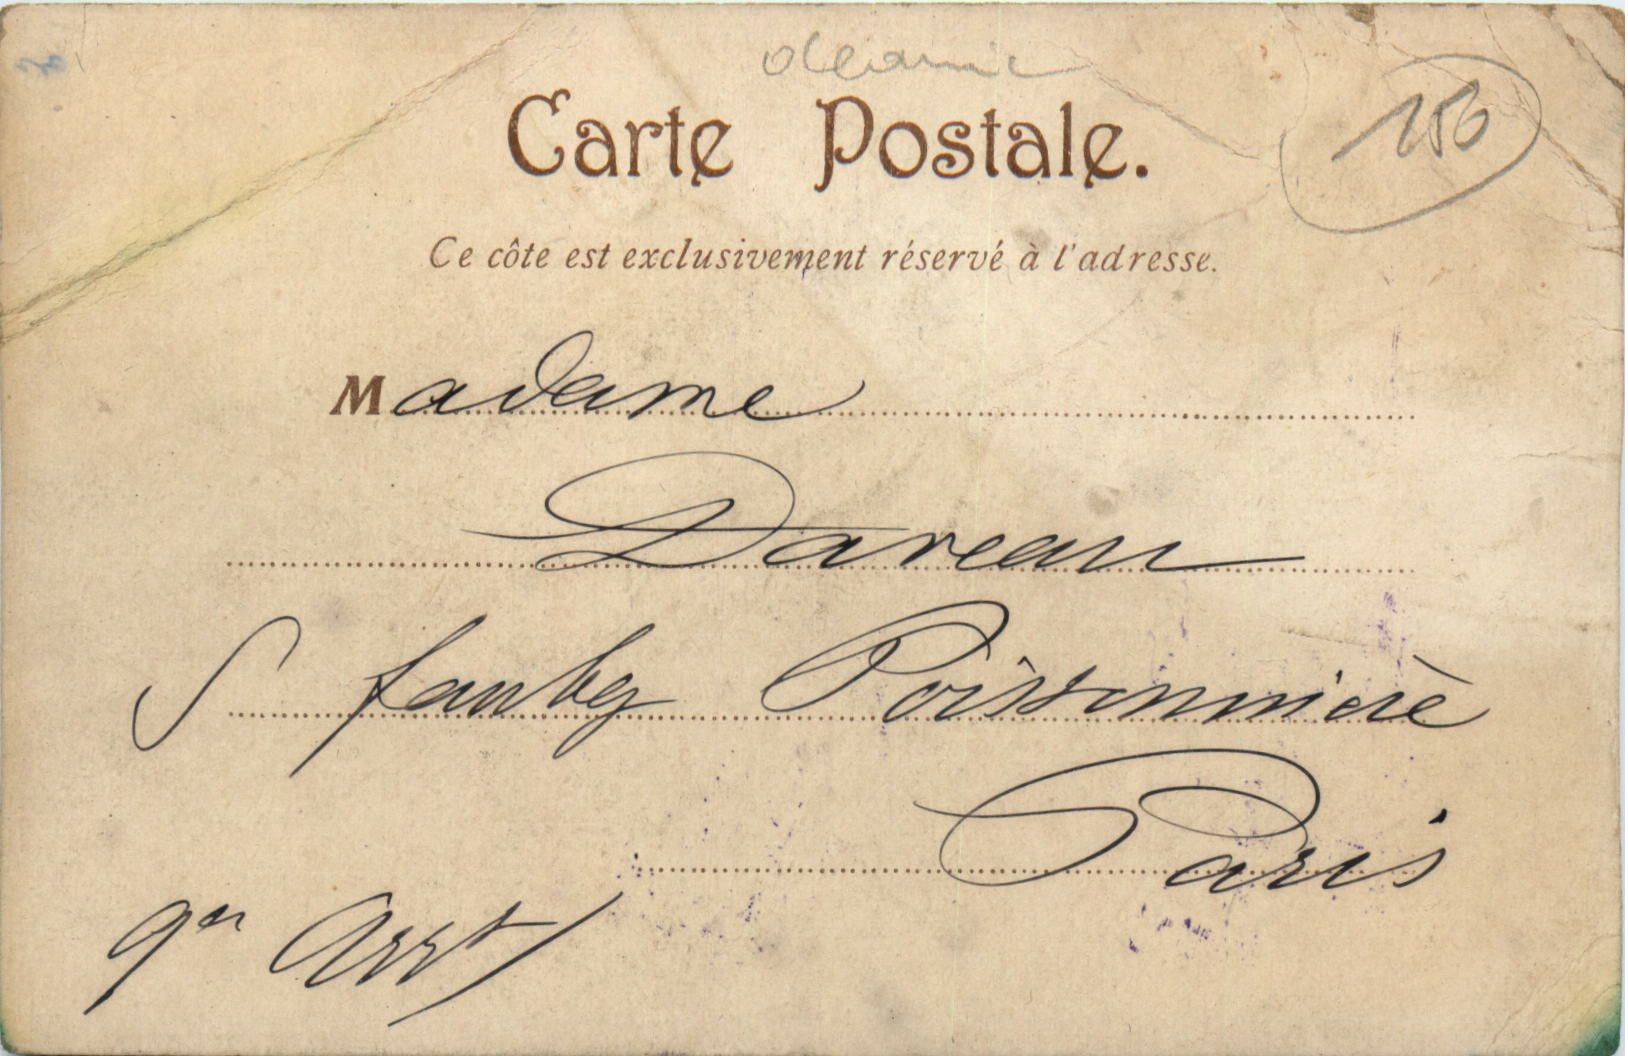 Oceanie
150
Carte Postale.
Ce côte est exclusivement réservé à l'adresse.
Madame
Dareau
5 faubg Poissonnière
Paris
9em Arrt